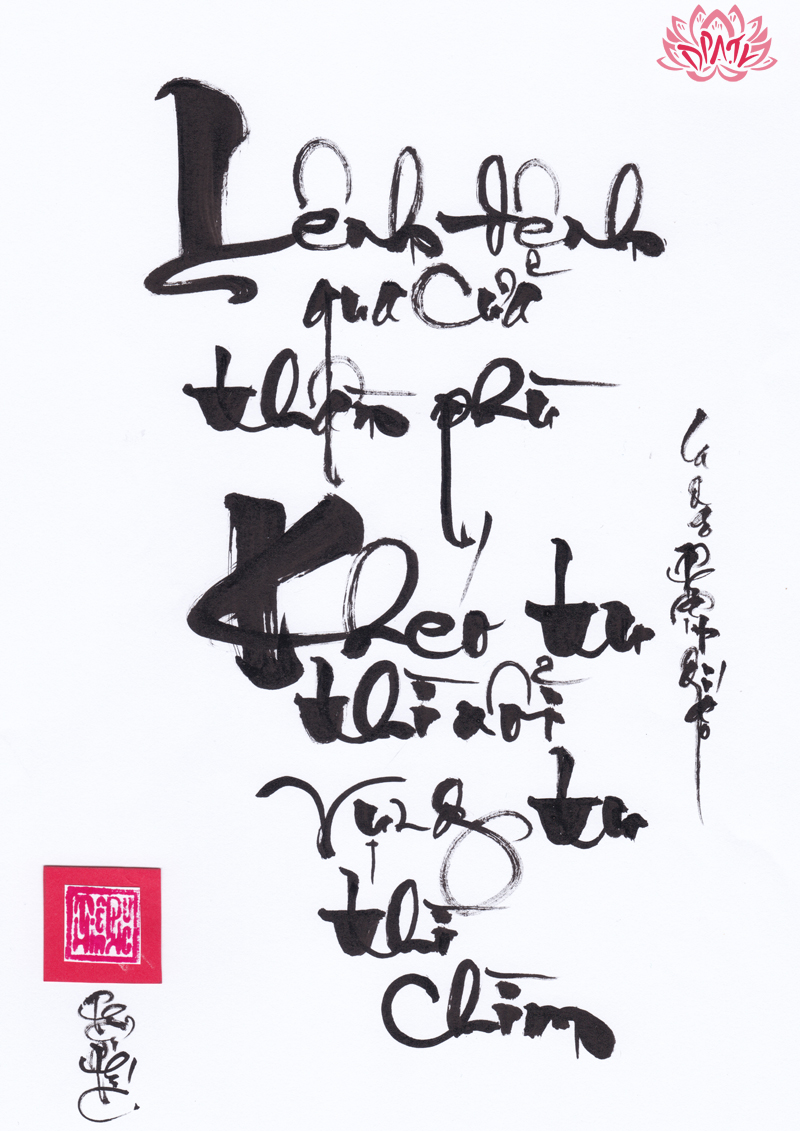 DPATV
Lênh đênh
qua cửa
thần phù
Khéo tu
thì nổi
Vụng tu
thì
Chìm